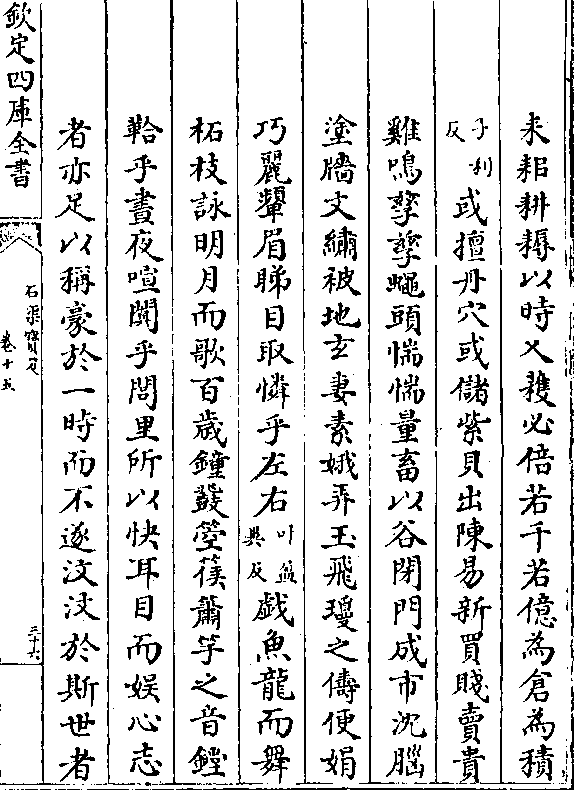 耒耜耕耨以時乂穫必倍若千若億為倉為積
子利反或擅丹穴或儲紫貝出陳易新買賤賣貴
雞鳴孳孳蠅頭惴惴量畜以谷閉門成市沈腦
塗牆文繡被地玄妻素娥弄玉飛瓊之儔便娟
巧麗顰眉睇目取憐乎左右叶盈異反戯魚龍而舞
柘枝詠明月而歌百歳鐘鼗箜篌簫竽之音鏗
鞈乎晝夜喧闐乎閭里所以快耳目而娱心志
者亦足以稱豪於一時而不遂汶汶於斯世者
欽定四庫全書
石渠寳笈
卷十五
三十六